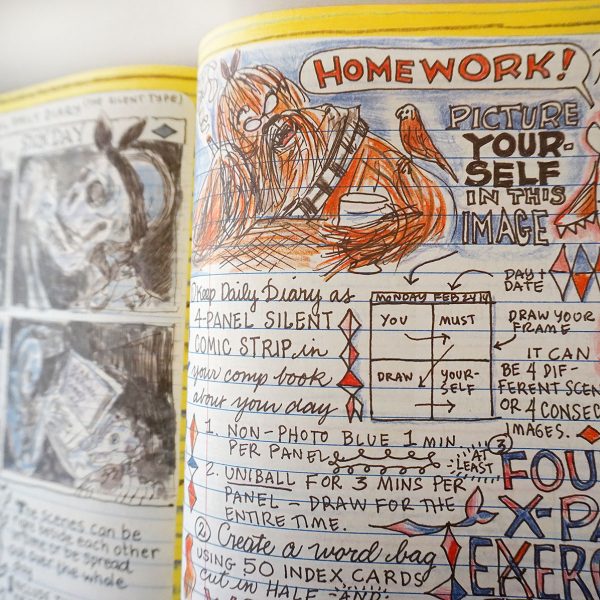 (THE SILENT TYPE)
SUNDAY
The scenes can be
right before each other
or be spread
out over the whole
HOMEWORK!
PICTURE
YOUR-
SELF
IN THIS
IMAGE
DAY +
DATE
Keep Daily Diary as
4-PANEL SILENT
COMIC STRIP in
your comp book
about your day
MONDAY FEB 24 14
YOU MUST
DRAW YOUR-
SELF
DRAW YOUR
FRAME
IT CAN
BE 4 DIF-
FERENT SCEN
OR 4 CONSEC
IMAGES.
1. NON-PHOTO BLUE 1 MIN
PER PANEL
2. UNIBALL FOR 3 MINS PER
PANEL - DRAW FOR THE
ENTIRE TIME.
AT
LEAST
② Create a word bag
USING 50 INDEX CARDS
cut in HALF -AND-
③
FOU
X-PA
EXERC